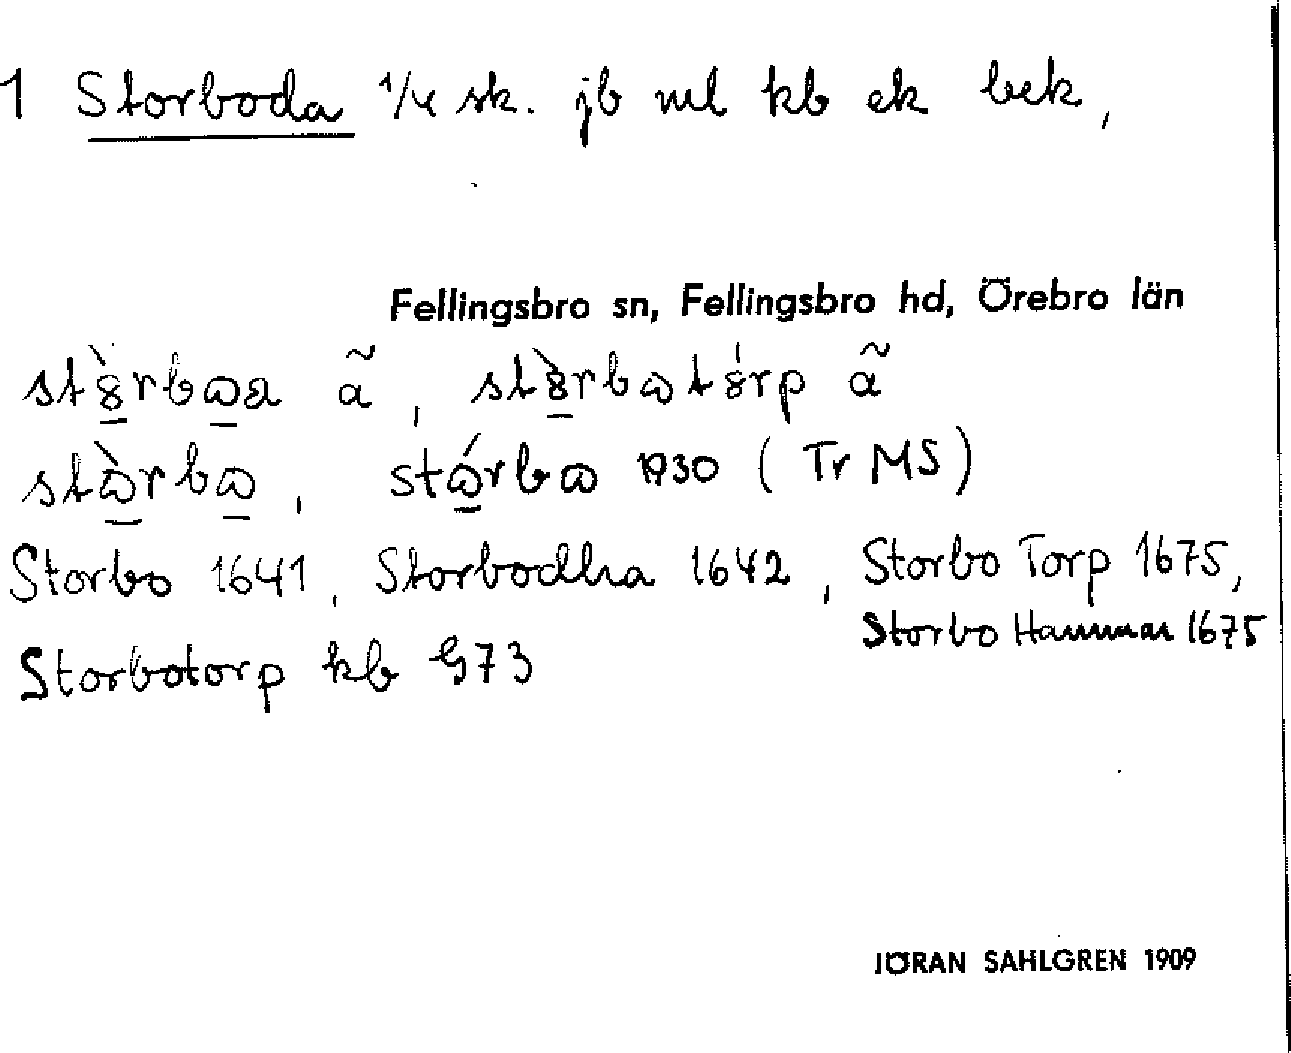 1 Storboda 1/4 sk. jb ml kb ek bek,
Fellingsbro sn, Fellingsbro hd, Örebro län
ã, ã
1930 (Tr MS)
Storbo 1641, Storbodha 1642, Storbo Torp 1675,
Storbo Hammar 1675
Storbotorp kb G73
JÖRAN SAHLGREN 1909